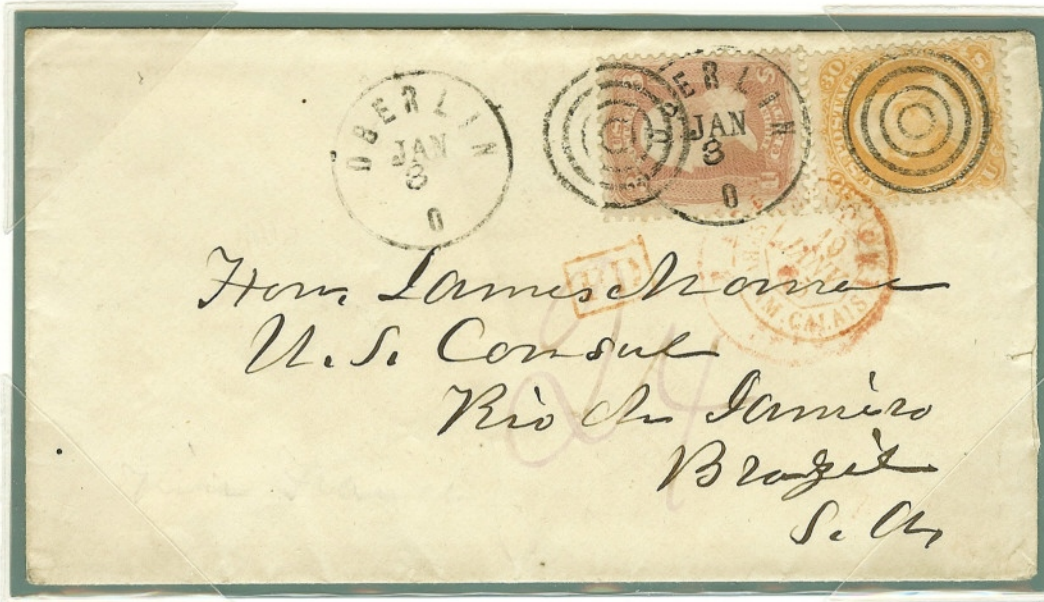 OBERLIN
JAN
8
O
OBERLIN
JAN
8
O
30
P.D.
19
JANV
CALAIS
Hon. James Monroe
U. S. Consul
Rio de Janeiro
Brazil
S. A.
24